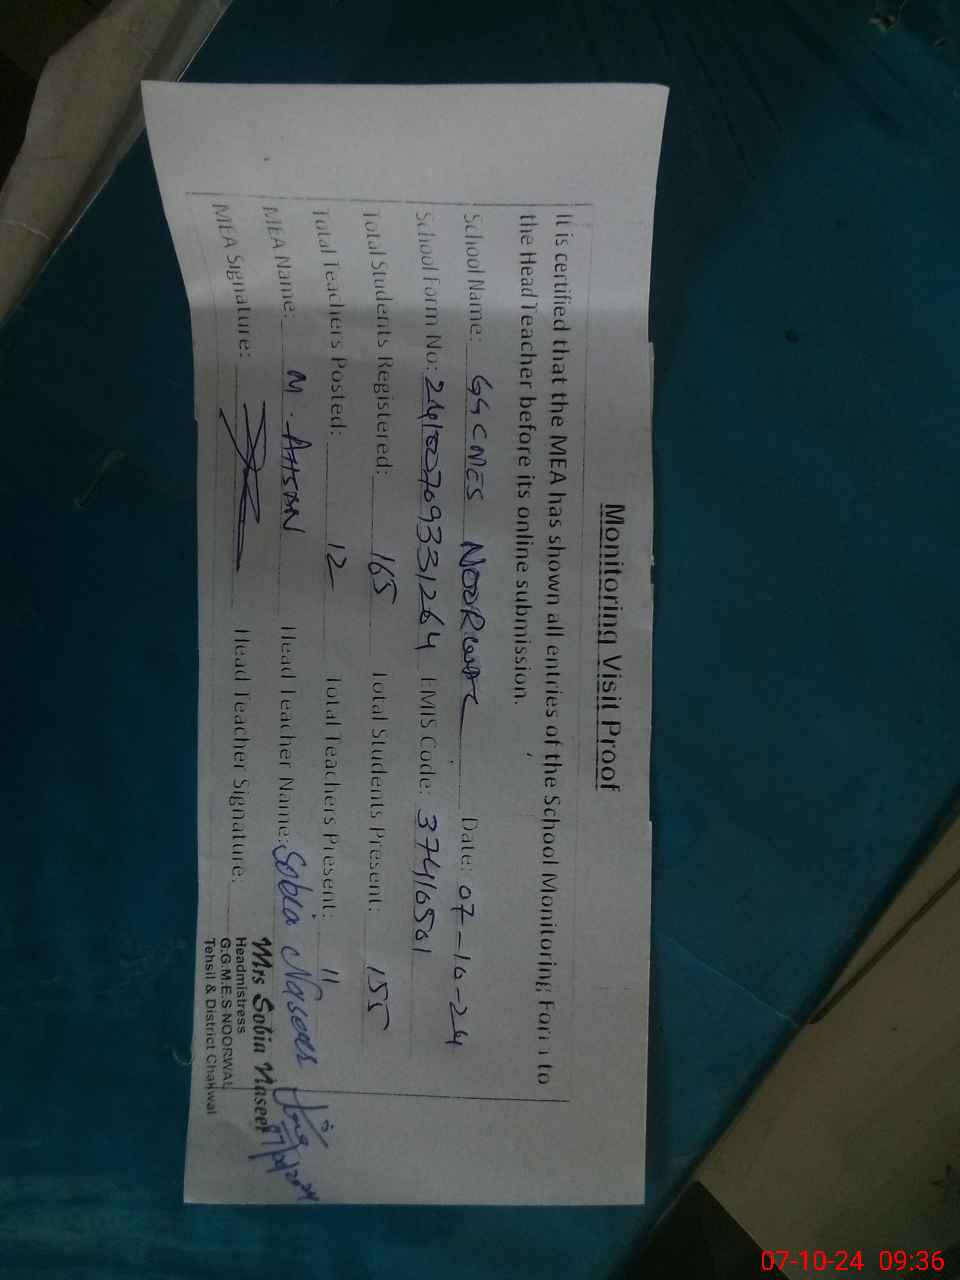 Monitoring Visit Proof
It is certified that the MEA has shown all entries of the School Monitoring Form to
the Head Teacher before its online submission.
School Name: GGCMES NOORWAL Date: 07-10-24
School Form No: 24100709331264 EMIS Code: 37410501
Total Students Registered: 165 Total Students Present: 155
Total Teachers Posted: 12 Total Teachers Present: 11
MEA Name: M. AHSAN Head Teacher Name: Sobia Naseer
MEA Signature: Head Teacher Signature:
Mrs Sobia Naseer
Headmistress
G.G.M.E.S NOORWAL
Tehsil & District Chakwal
07-10-24 09:36